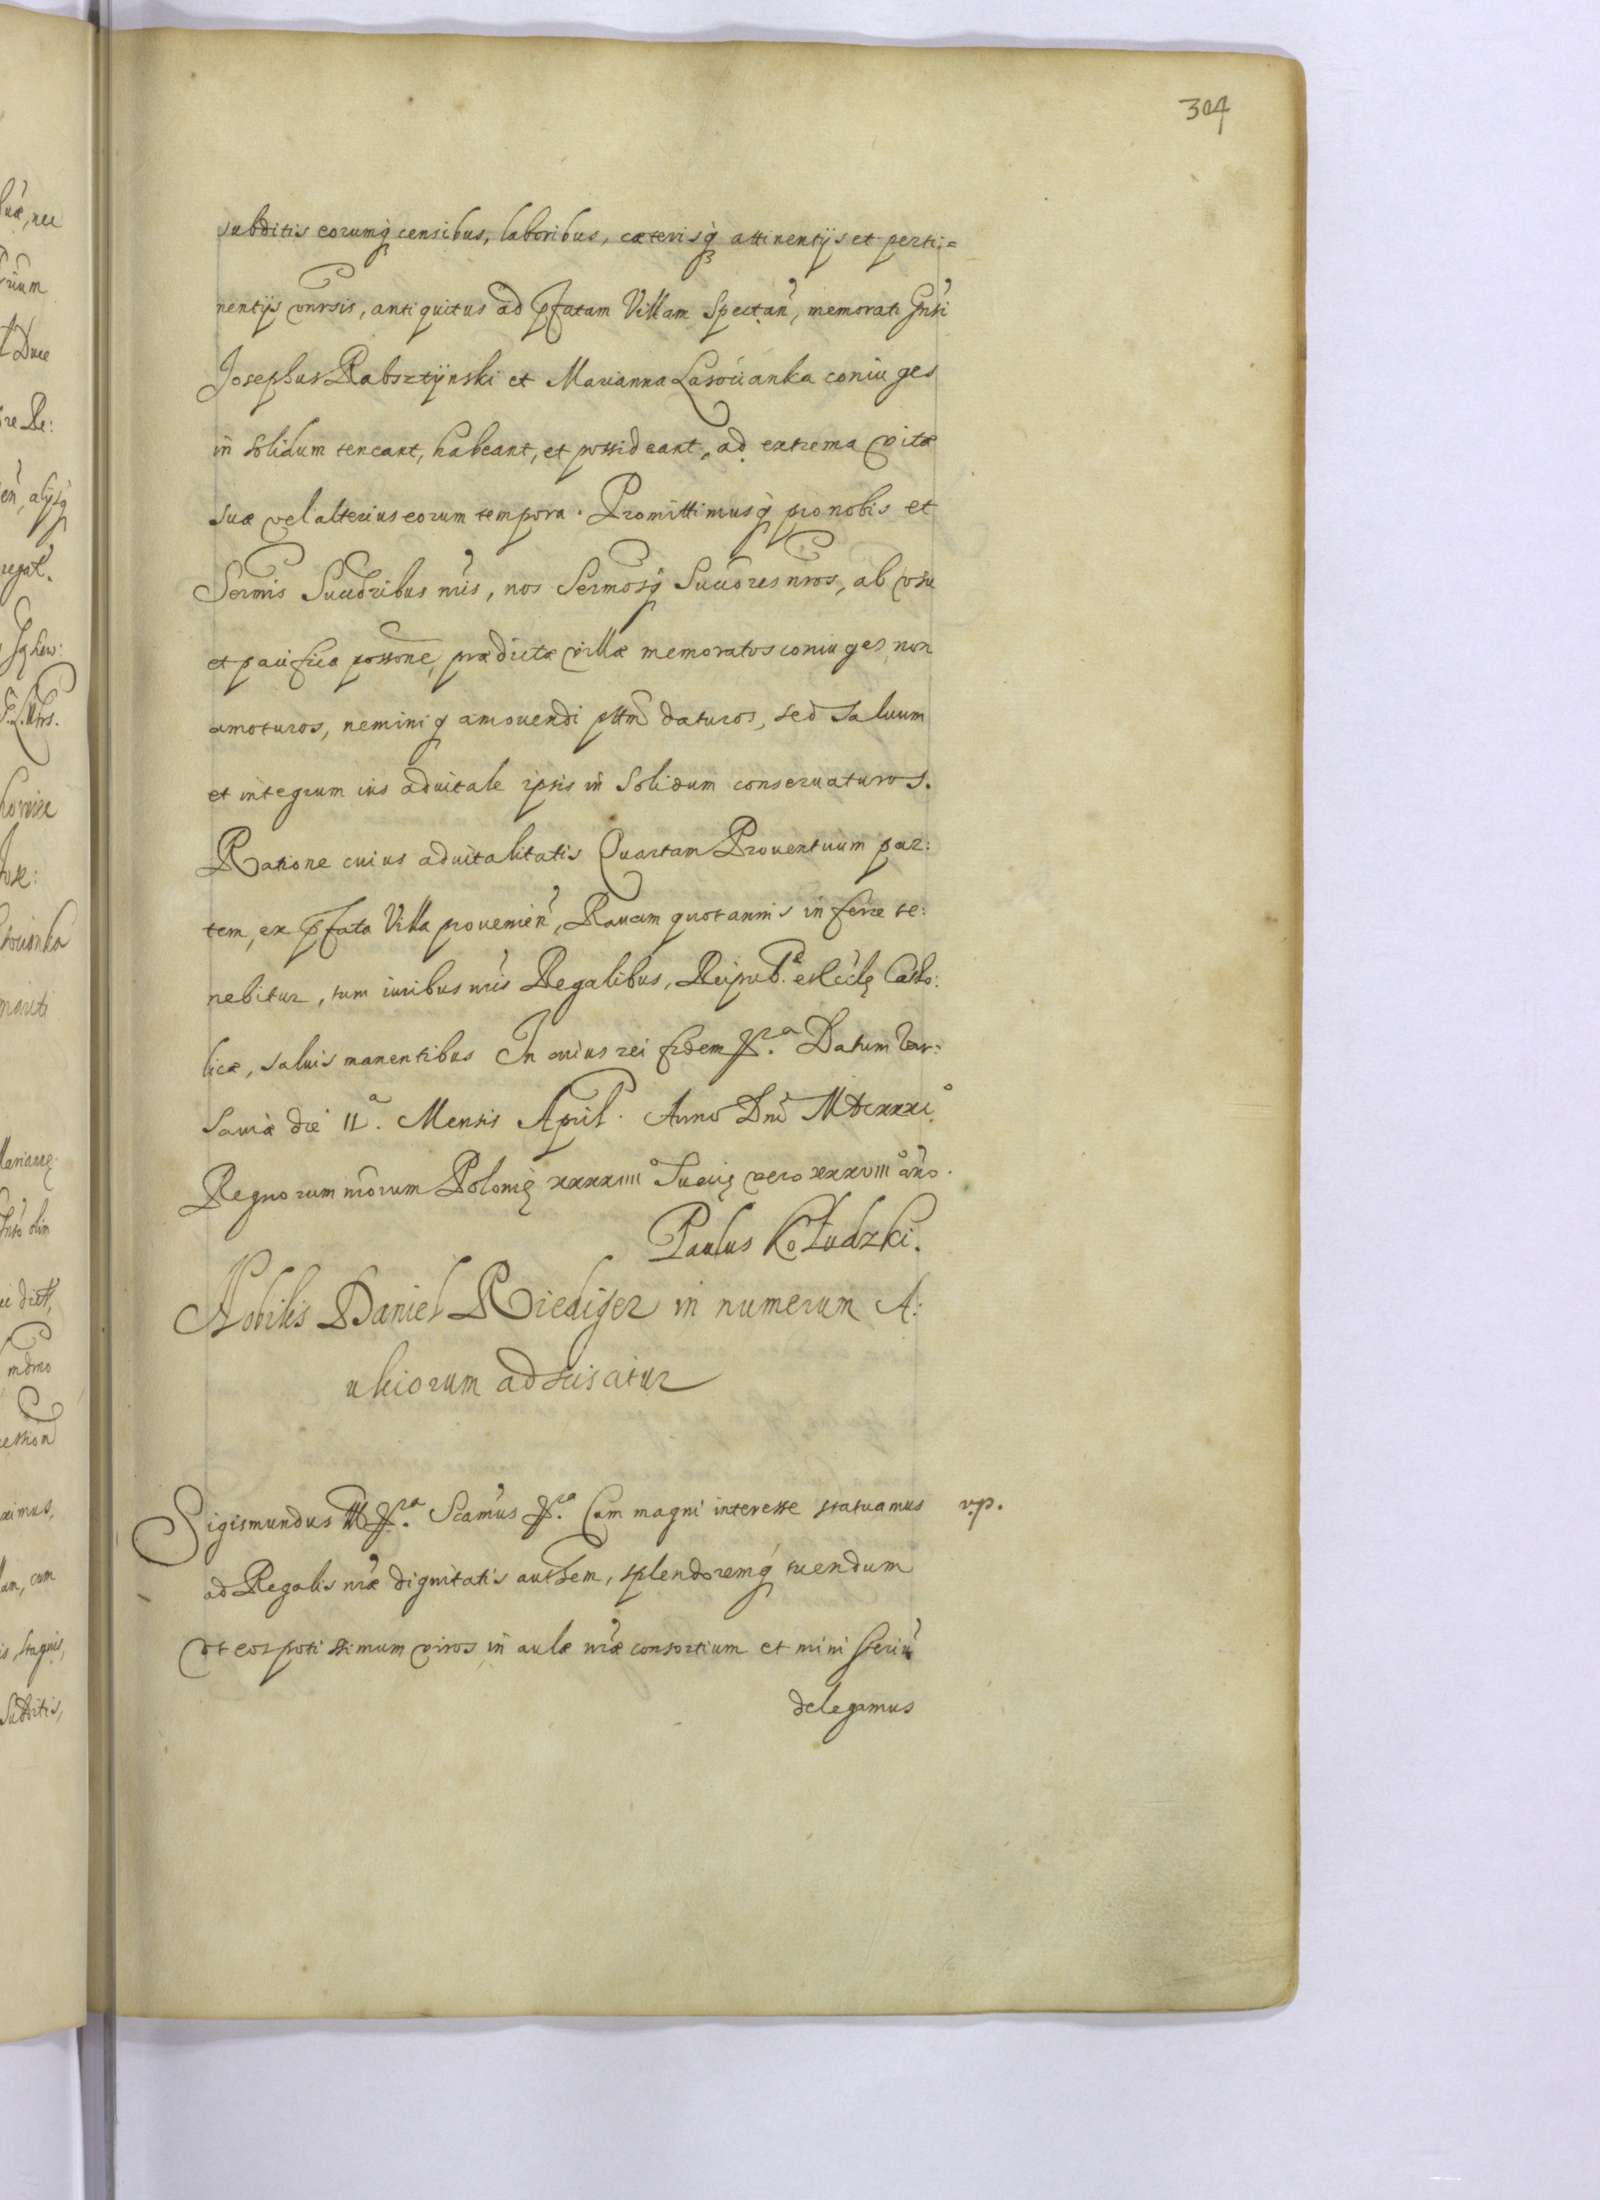 304
subditis eorumq censibus, laboribus, cæterisq attinentijs et perti=
nentijs vnrsis, antiquitus ad pfatam Villam Spectan, memorati Gnsi
Josephus Rabsztÿnski et Marianna Lasocianka coniuges
in solidum teneant, habeant, et possideant, ad extrema vitæ
suæ vel alterius eorum tempora. Promittimusq pro nobis et
Sermis Succoribus nris, nos Sermosq Succores nros, ab vsu
et pacifica possone, prædictæ villæ memoratos coniuges non
amoturos, neminiq amouendi pttm daturos, sed saluum
et integrum ius aduitale ipsis in solidum conseruaturos.
Ratione cuius aduitalitatis Quartam Prouentuum par:
tem, ex pfata Villa prouenien, Rauam quotannis inferre te:
nebitur, tum iuribus nris Regalibus, Reipub. et Eccle Catho:
licæ, saluis manentibus In cuius rei fidem Datum Var:
sauiæ die 11.a Mensis April. Anno Dni MDCXXXI.o
Regnorum nrorum Polonię xxxxiiii o Suecię vero xxxviii o ano.
Paulus Kołudzki.
Nobilis Daniel Riediger in numerum A:
ulicorum adscisciturㅤ
Sigismundus III Scamus Cum magni interesse statuamus v.p.
ad Regalis nræ dignitatis authem, splendoremq tuendum
vt eos potissimum viros in aulæ nræ consortium et ministeriu
delegamus